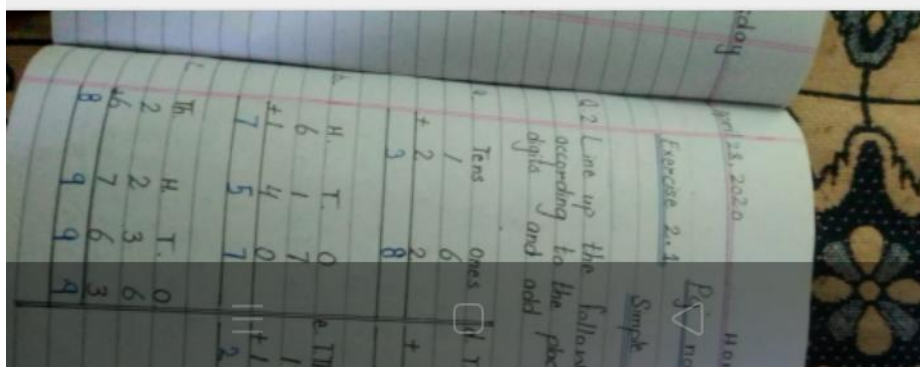 iday
April 28, 2020
Exercise 2.1
Simple
Q 2 Line up the
according to the
digits and add
Tens ones
1 6
+ 2 2
3 8
H. T. O
6 1 7
+ 1 4 0
7 5 7
Th H. T. O
2 2 3 6
+6 7 6 3
8 9 9 9